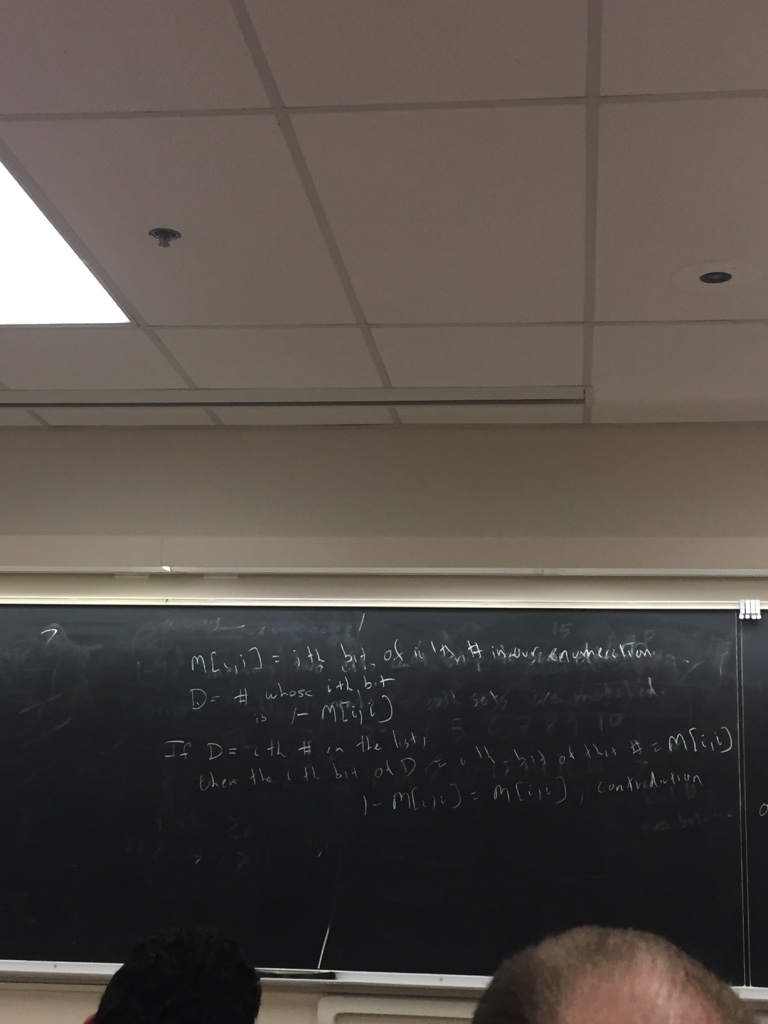 15
M[i,i] = ith bit of i'th # in our enumeration.
D = # whose ith bit
sets we
is 1 - M[i,i]
5 6 7 8 9 10
If D = ith # in the list,
then the ith bit of D = i'th bit of this # = M[i,i]
1 - M[i,i] = M[i,i], contradiction